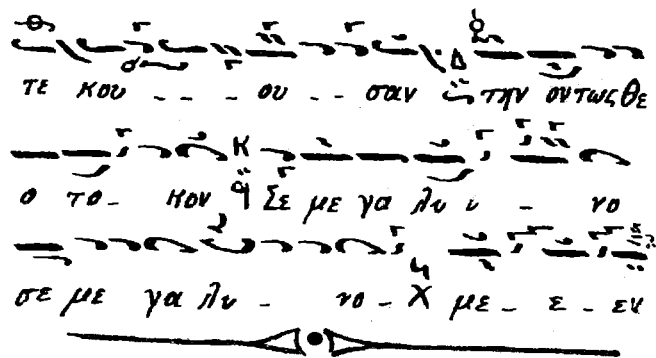 τε κου - - - ου - - σαν Δ την οντως θε
ο το - κον Κ Σε με γα λυ υ - νο
σε με γα λυ - νο - Χ με - ε - εν